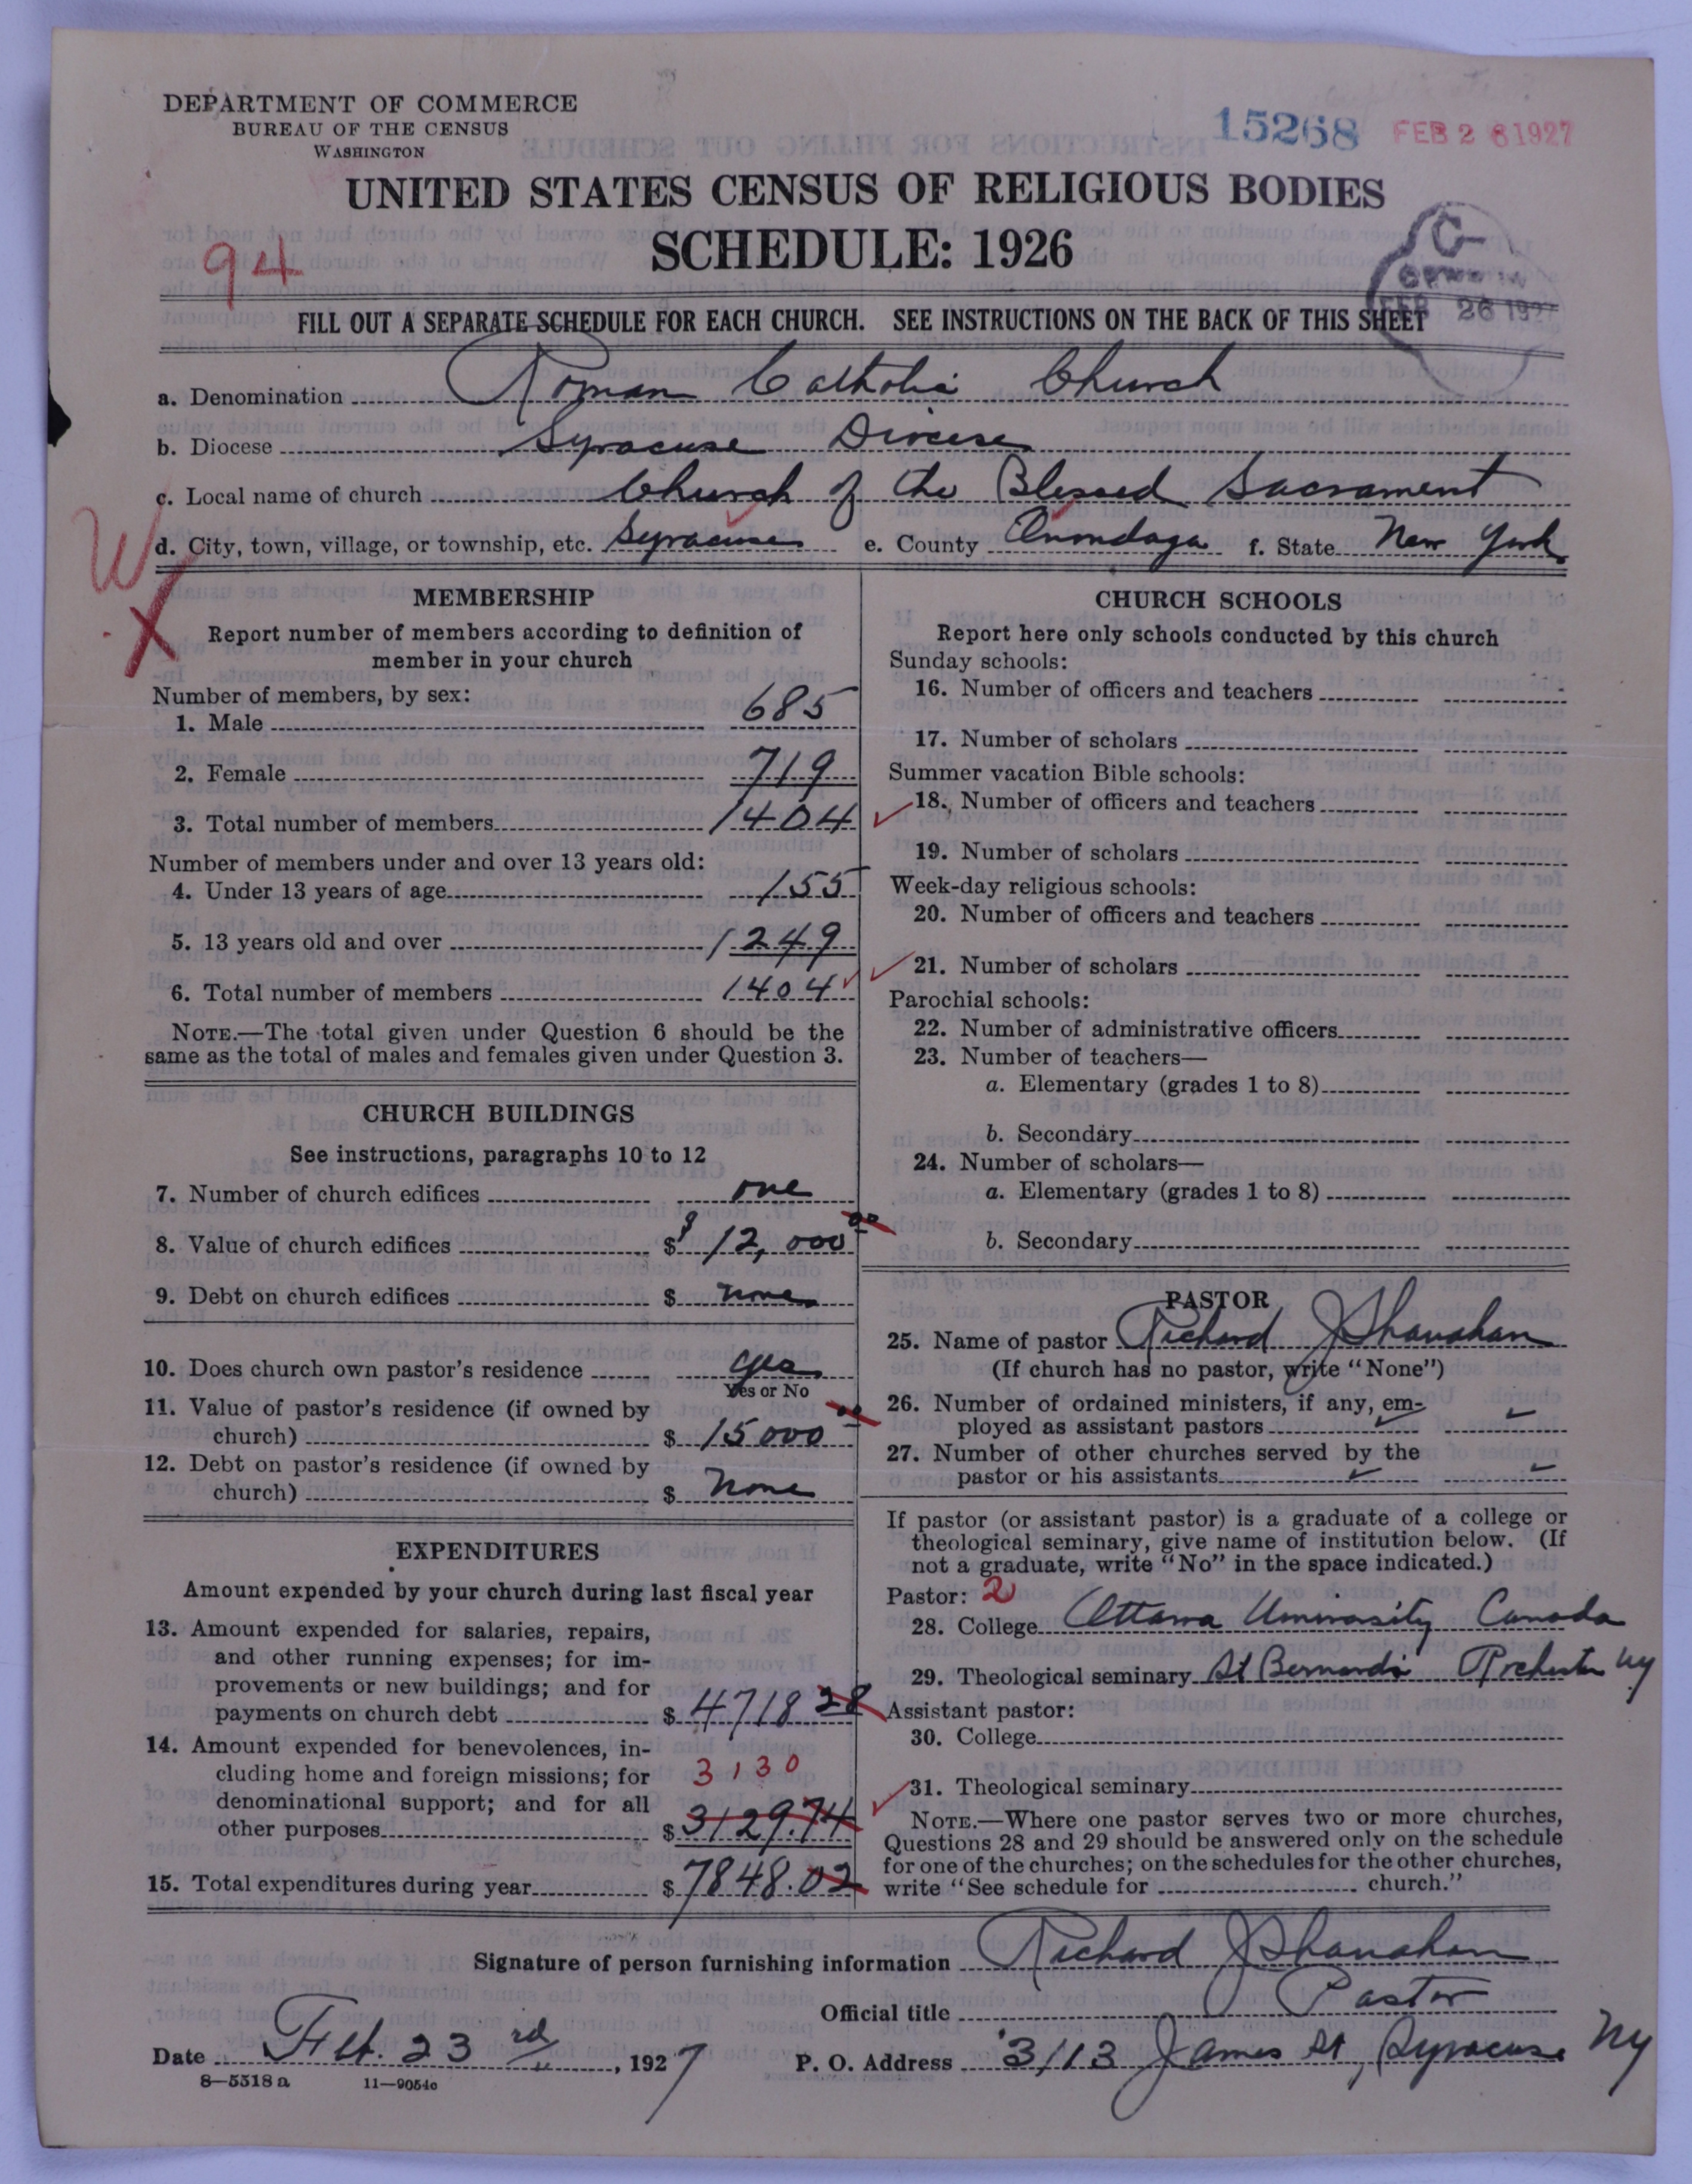 DEPARTMENT OF COMMERCE
BUREAU OF THE CENSUS
WASHINGTON
15268 FEB 26 1927
UNITED STATES CENSUS OF RELIGIOUS BODIES
SCHEDULE: 1926
94
FEB 26 1927
FILL OUT A SEPARATE SCHEDULE FOR EACH CHURCH. SEE INSTRUCTIONS ON THE BACK OF THIS SHEET
a. Denomination Roman Catholic Church
b. Diocese Syracuse Diocese
c. Local name of church Church of the Blessed Sacrament
d. City, town, village, or township, etc. Syracuse e. County Onondaga f. State New York
W
X
MEMBERSHIP
Report number of members according to definition of
member in your church
Number of members, by sex:
1. Male 685
2. Female 719
3. Total number of members 1404
Number of members under and over 13 years old:
4. Under 13 years of age 155
5. 13 years old and over 1249
6. Total number of members 1404
NOTE.—The total given under Question 6 should be the
same as the total of males and females given under Question 3.
CHURCH BUILDINGS
See instructions, paragraphs 10 to 12
7. Number of church edifices one
8. Value of church edifices $ $12,000 00
9. Debt on church edifices $ none
10. Does church own pastor's residence yes
Yes or No
11. Value of pastor's residence (if owned by
church) $ 15000 00
12. Debt on pastor's residence (if owned by
church) $ none
EXPENDITURES
Amount expended by your church during last fiscal year
13. Amount expended for salaries, repairs,
and other running expenses; for im-
provements or new buildings; and for
payments on church debt $ 4718 28
14. Amount expended for benevolences, in-
cluding home and foreign missions; for 3130
denominational support; and for all
other purposes $ 3129.74
15. Total expenditures during year $ 7848.02
CHURCH SCHOOLS
Report here only schools conducted by this church
Sunday schools:
16. Number of officers and teachers
17. Number of scholars
Summer vacation Bible schools:
18. Number of officers and teachers
19. Number of scholars
Week-day religious schools:
20. Number of officers and teachers
21. Number of scholars
Parochial schools:
22. Number of administrative officers
23. Number of teachers—
a. Elementary (grades 1 to 8)
b. Secondary
24. Number of scholars—
a. Elementary (grades 1 to 8)
b. Secondary
PASTOR
25. Name of pastor Richard J Shanahan
(If church has no pastor, write "None")
26. Number of ordained ministers, if any, em-
ployed as assistant pastors
27. Number of other churches served by the
pastor or his assistants
If pastor (or assistant pastor) is a graduate of a college or
theological seminary, give name of institution below. (If
not a graduate, write "No" in the space indicated.)
Pastor: 2
28. College Ottawa University Canada
29. Theological seminary St Bernards Rochester NY
Assistant pastor:
30. College
31. Theological seminary
NOTE.—Where one pastor serves two or more churches,
Questions 28 and 29 should be answered only on the schedule
for one of the churches; on the schedules for the other churches,
write "See schedule for church."
Signature of person furnishing information Richard J Shanahan
Official title Pastor
Date Feb. 23 rd, 1927 P. O. Address 3113 James St, Syracuse NY
8—5518 a 11—9054c